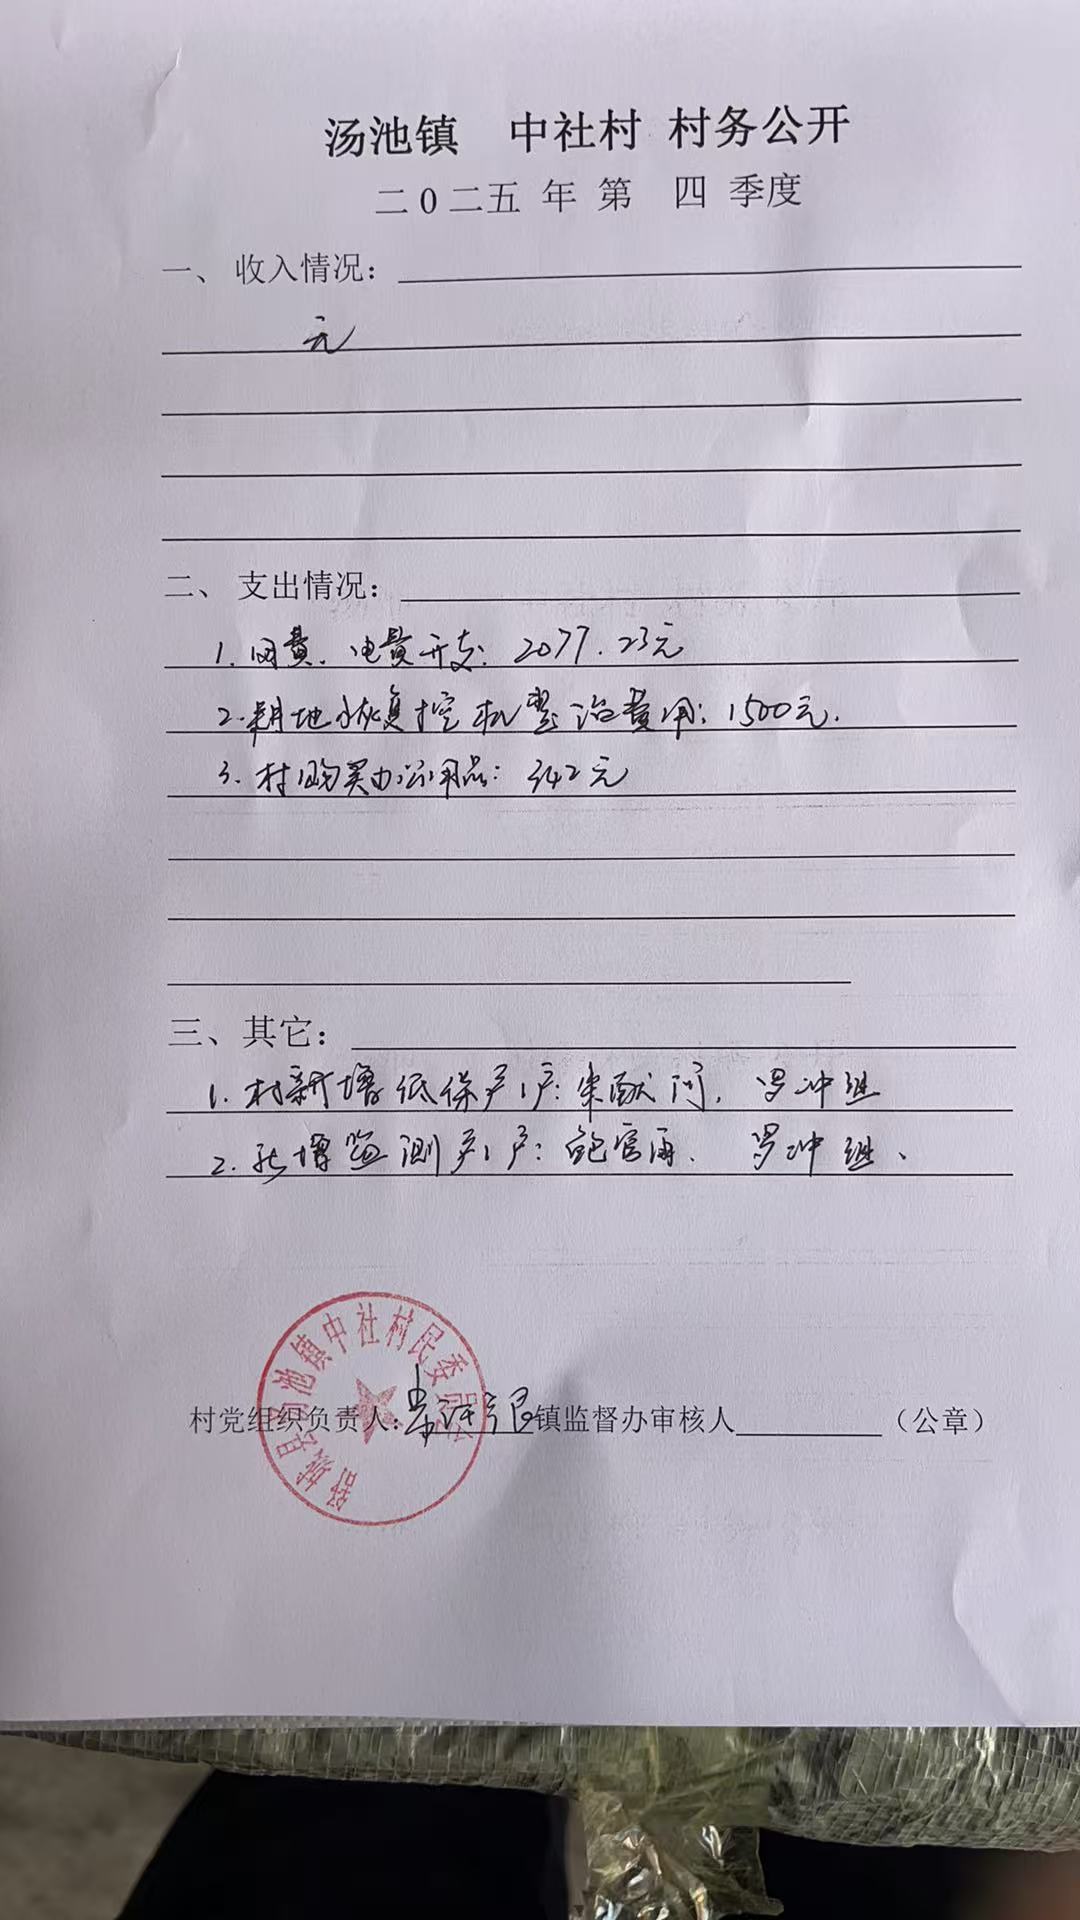 汤池镇 中社村 村务公开
二0二五 年 第 四 季度
一、 收入情况：
无
二、 支出情况：
1. 网费、电费开支：2077.23元
2. 耕地恢复挖机整治费用：1500元.
3. 村购买办公用品：342元
三、其它：
1. 村新增低保户1户： 罗冲组
2. 新增监测户1户：鲍官 罗冲组、
舒城县汤池镇中社村民委员会
村党组织负责人： 镇监督办审核人 （公章）